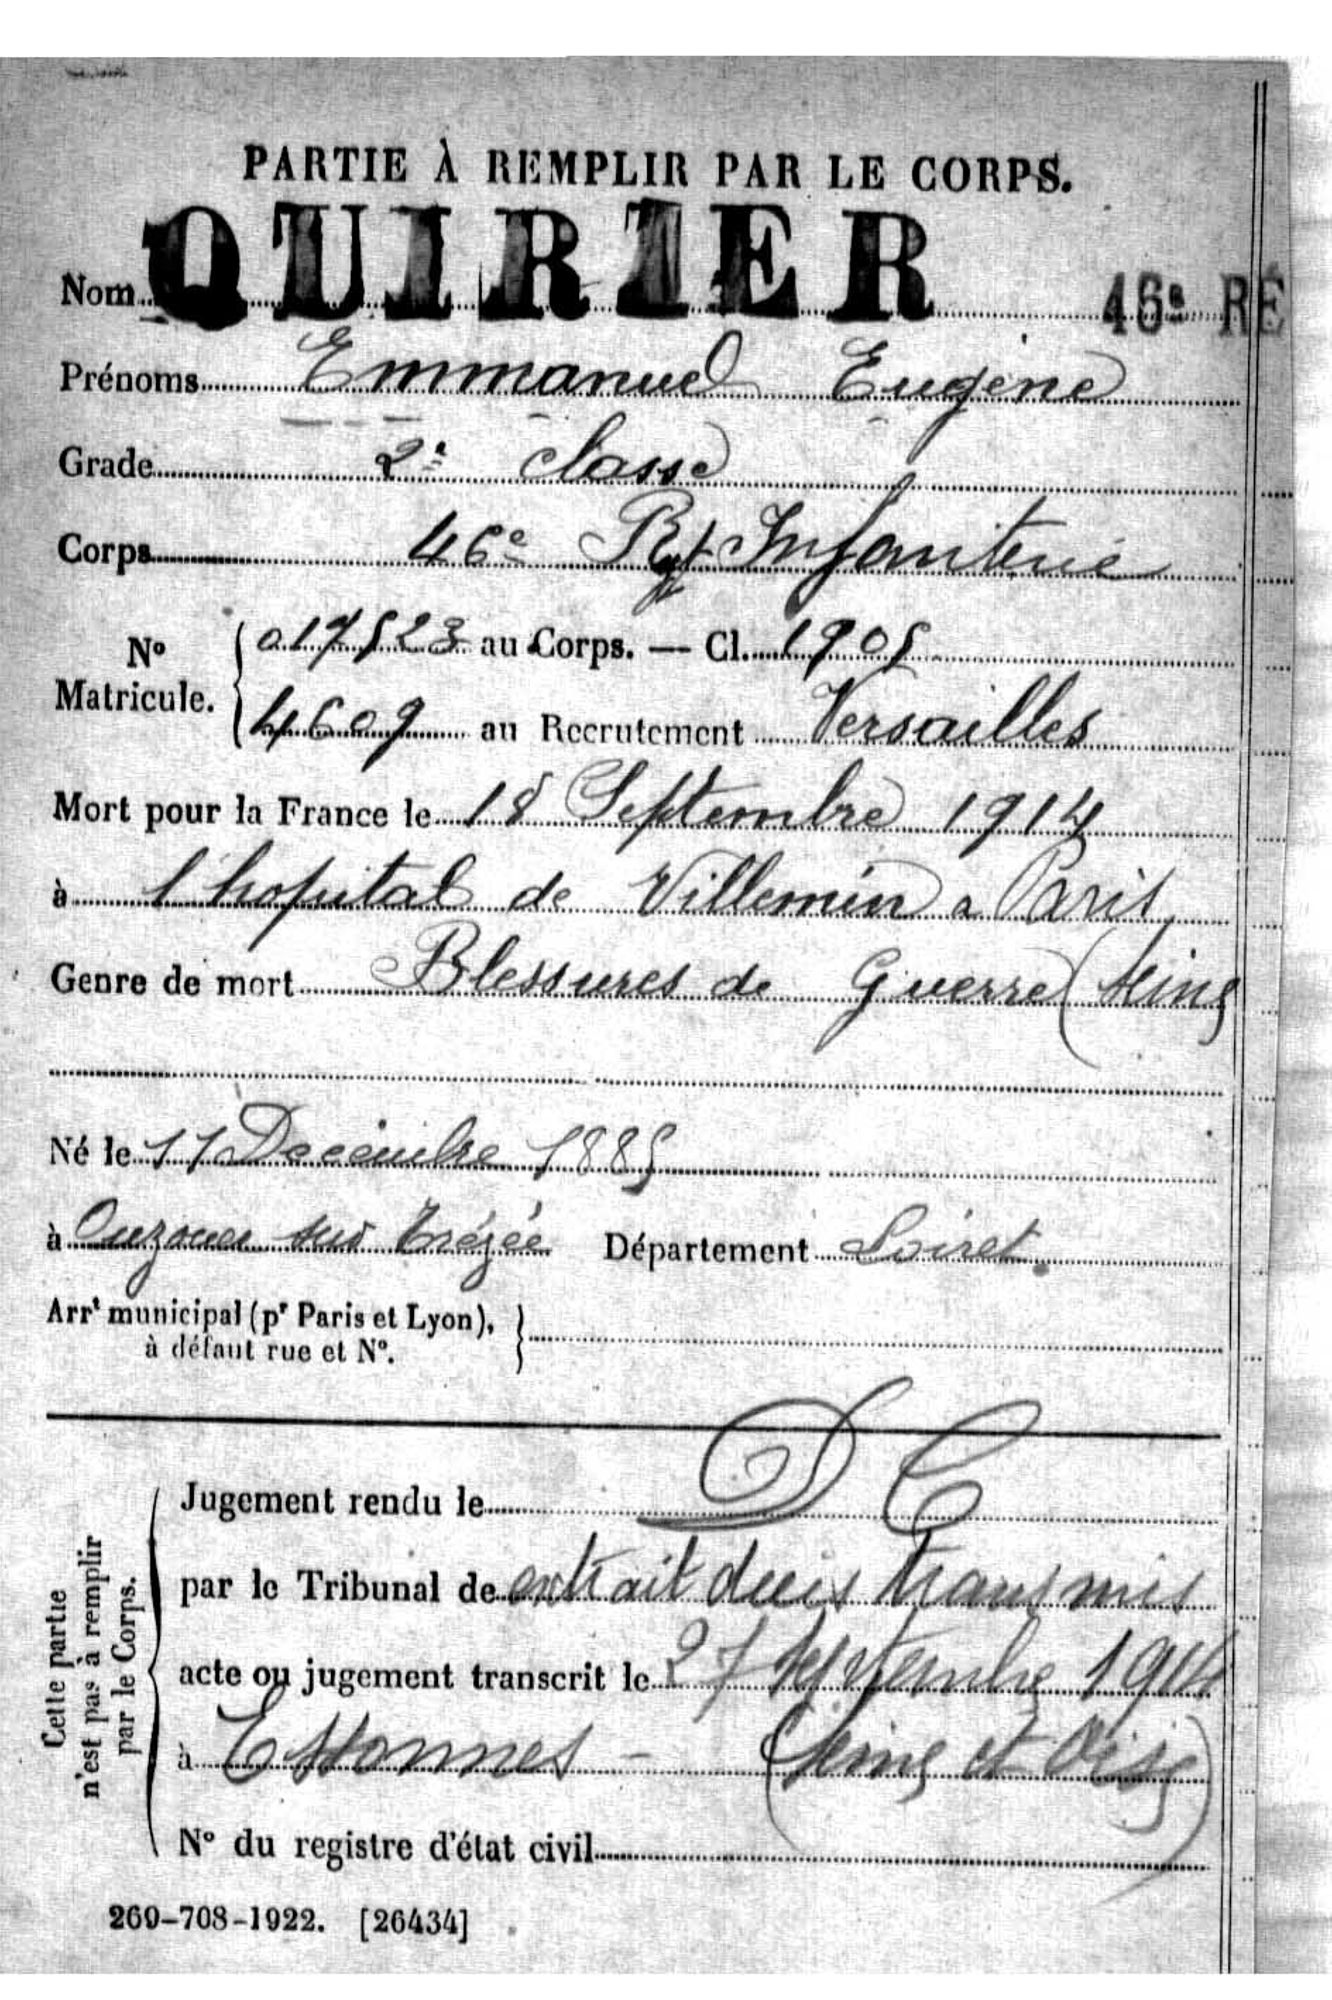 PARTIE À REMPLIR PAR LE CORPS.
Nom QUIRIER 46e RÉ
Prénoms Emmanuel Eugène
Grade 2e classe
Corps 46e Rgt Infanterie
No Matricule. 017523 au Corps. — Cl. 1905
4609 au Recrutement Versailles
Mort pour la France le 18 Septembre 1914
à l'hopital de Villemin a Paris
Genre de mort Blessures de Guerre (Seine
Né le 11 Decembre 1885
à Ouzouer sur Trézée Département Loiret
Arrt municipal (pr Paris et Lyon),
à défaut rue et No.
DC
Cette partie n'est pas à remplir par le Corps.
Jugement rendu le
par le Tribunal de extrait deces transmis
acte ou jugement transcrit le 27 Septembre 1914
à Essonnes - (Seine et Oise)
No du registre d'état civil
269-708-1922. [26434]